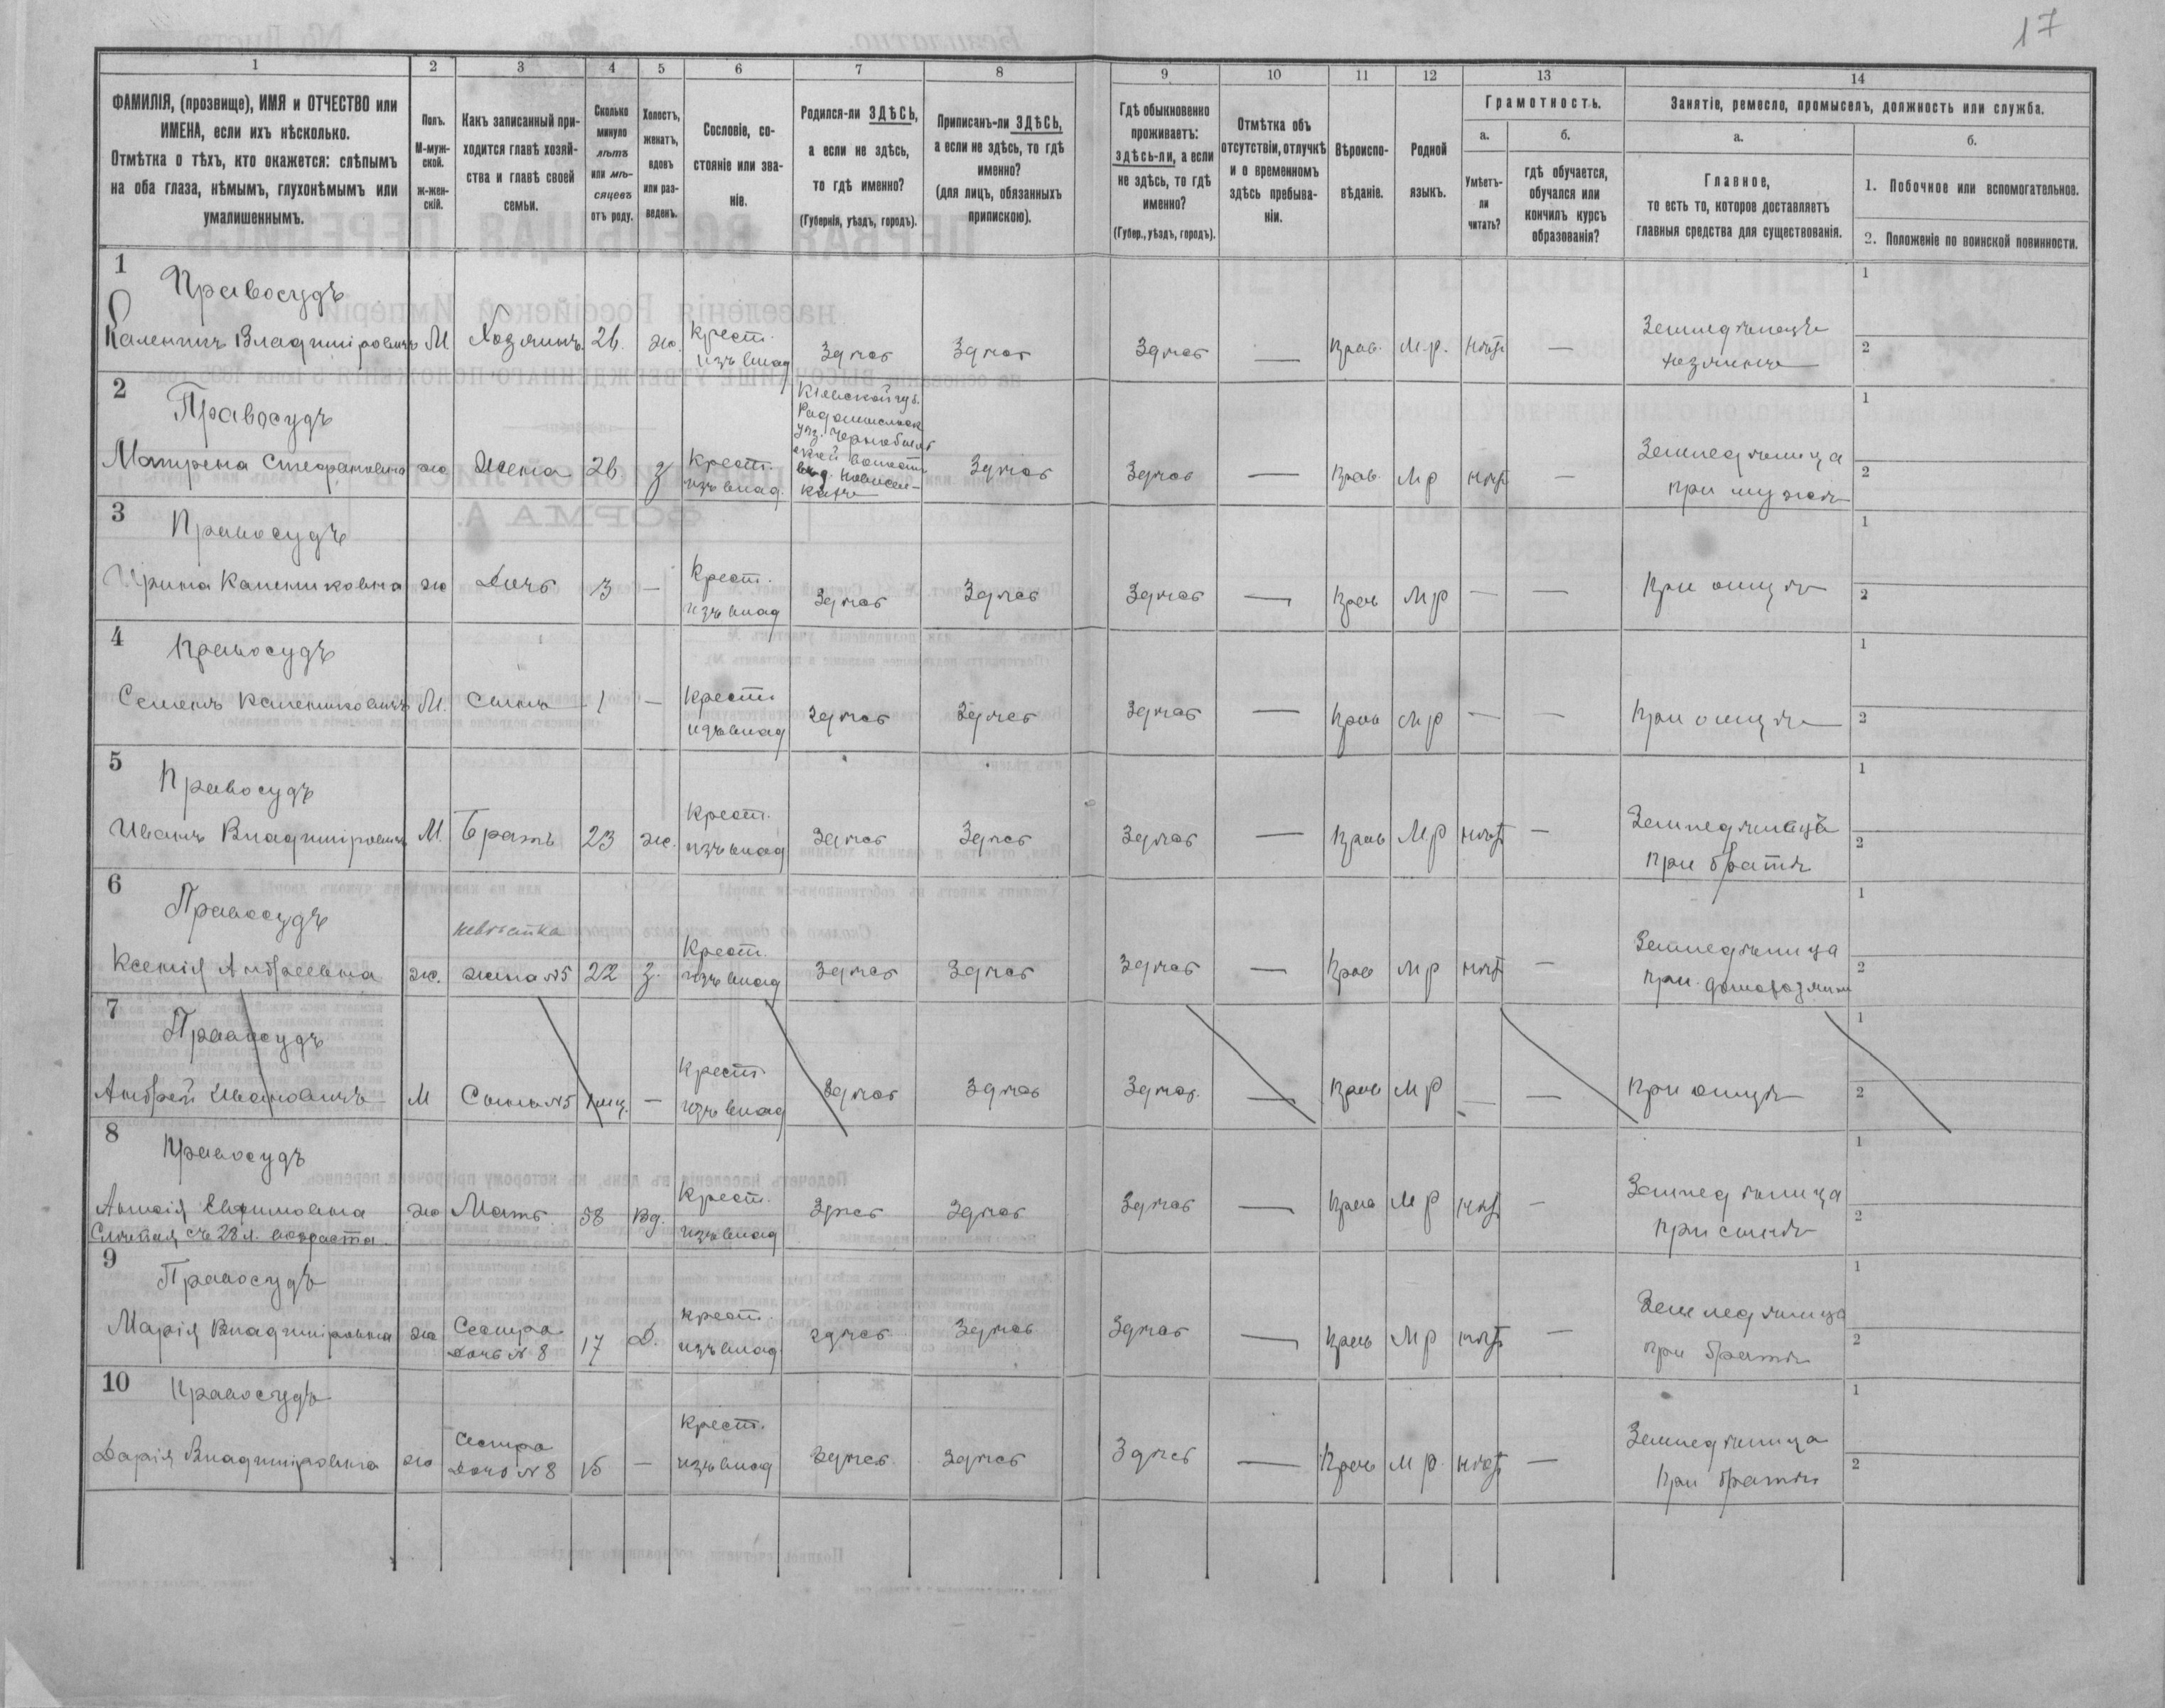 17
1 2 3 4 5 6 7 8 9 10 11 12 13 14
ФАМИЛІЯ, (прозвище), ИМЯ и ОТЧЕСТВО или ИМЕНА, если ихъ нѣсколько.
Отмѣтка о тѣхъ, кто окажется: слѣпымъ на оба глаза, нѣмымъ, глухонѣмымъ или умалишеннымъ.
Полъ. М-мужской. ж-женскій.
Какъ записанный приходится главѣ хозяйства и главѣ своей семьи.
Сколько минуло лѣтъ или мѣсяцевъ отъ роду.
Холостъ, женатъ, вдовъ или разведенъ.
Сословіе, состояніе или званіе.
Родился-ли ЗДѢСЬ, а если не здѣсь, то гдѣ именно?
(Губернія, уѣздъ, городъ).
Приписанъ-ли ЗДѢСЬ, а если не здѣсь, то гдѣ именно?
(для лицъ, обязанныхъ припискою).
Гдѣ обыкновенно проживаетъ: здѣсь-ли, а если не здѣсь, то гдѣ именно?
(Губер., уѣздъ, городъ).
Отмѣтка объ отсутствіи, отлучкѣ и о временномъ здѣсь пребываніи.
Вѣроисповѣданіе.
Родной языкъ.
Грамотность.
а. Умѣетъ-ли читать?
б. гдѣ обучается, обучался или кончилъ курсъ образованія?
Занятіе, ремесло, промыселъ, должность или служба.
а. Главное, то есть то, которое доставляетъ главныя средства для существованія.
б.
1. Побочное или вспомогательное.
2. Положеніе по воинской повинности.
1 Правосудъ
Каленикъ Владиміровичъ М Хозяинъ 26 ж. Крест. изъ влад Здѣсь Здѣсь Здѣсь — Прав. М.р. нѣтъ — Земледѣлецъ хозяинъ 1 2
2 Правосудъ
Матрена Стефановна ж Жена 26 з Крест. изъ влад. Кіевской губ. Радомысльск уѣз. Чернобыльской волости Здѣсь Здѣсь — Прав. М р нѣтъ — Земледѣлица при мужѣ 1 2
3 Правосудъ
Ирина Калениковна ж Дочь 3 — Крест. изъ влад Здѣсь Здѣсь Здѣсь — Прав М р — — При отцѣ 1 2
4 Правосудъ
Семенъ Калениковичъ М. Сынъ 1 — Крест. изъ влад Здѣсь Здѣсь Здѣсь — Прав М р — — При отцѣ 1 2
5 Правосудъ
Иванъ Владиміровичъ М. Братъ 23 ж. Крест. изъ влад Здѣсь Здѣсь Здѣсь — Прав М р нѣтъ — Земледѣлецъ при братѣ 1 2
6 Правосудъ
Ксенія Андреевна ж. невѣстка жена №5 22 з. Крест. изъ влад Здѣсь Здѣсь Здѣсь — Прав М р нѣтъ — Земледѣлица при домохозяинѣ 1 2
7 Правосудъ
Андрей Ивановичъ М Сынъ №5 — Крест. изъ влад Здѣсь Здѣсь Здѣсь — Прав М р — — При отцѣ 1 2
8 Правосудъ
Анисія Ефимовна ж Мать 58 вд. Крест. изъ влад Здѣсь Здѣсь Здѣсь — Прав М р нѣтъ — Земледѣлица при сынѣ 1 2
Слѣпая съ 28 л. возраста
9 Правосудъ
Марія Владиміровна ж Сестра Дочь № 8 17 Д. Крест. изъ влад Здѣсь Здѣсь Здѣсь — Прав М р нѣтъ — Земледѣлица при братѣ 1 2
10 Правосудъ
Дарія Владиміровна ж Сестра Дочь № 8 15 — Крест. изъ влад Здѣсь Здѣсь Здѣсь — Прав М р. нѣтъ — Земледѣлица при братѣ 1 2